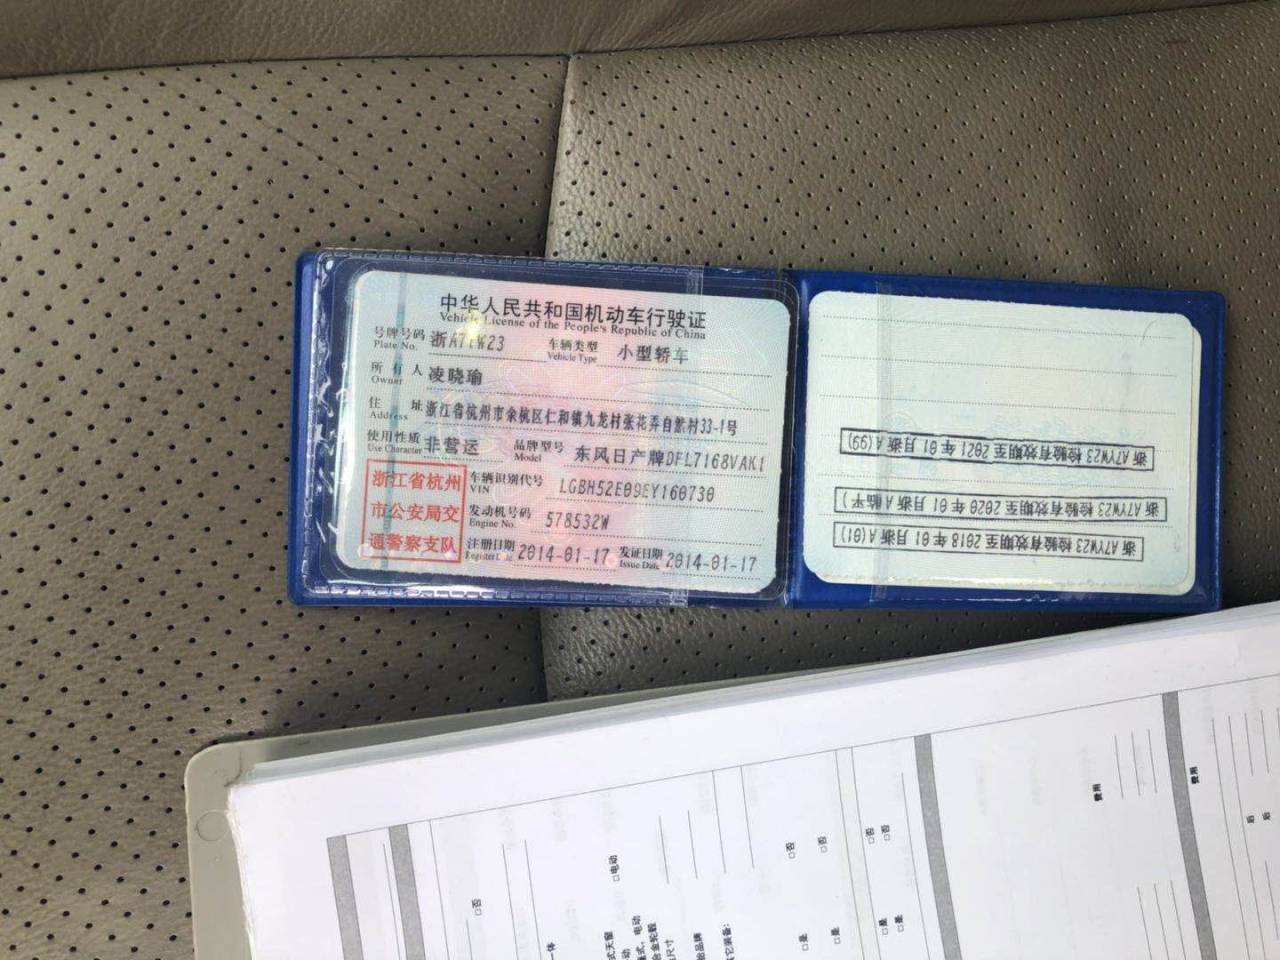 中华人民共和国机动车行驶证
Vehicle License of the People's Republic of China
号牌号码 浙A7YW23 车辆类型 小型轿车
Plate No. Vehicle Type
所有人 凌晓瑜
Owner
住址 浙江省杭州市余杭区仁和镇九龙村张花弄自然村33-1号
Address
使用性质 非营运 品牌型号 东风日产牌DFL7168VAK1
Use Character Model
浙江省杭州
市公安局交
通警察支队
车辆识别代号 LGBH52E09EY160730
VIN
发动机号码 578532W
Engine No.
注册日期 2014-01-17 发证日期 2014-01-17
Register Date Issue Date
浙 A7YW23 检验有效期至 2018 年 01 月浙 A(01)
浙 A7YW23 检验有效期至 2020 年 01 月浙 A(临平)
浙 A7YW23 检验有效期至 2021 年 01 月浙 A(99)
费用
费用
后
后
□否
□否
□否
□否
□否
□是
□是
□是
□是
□电动